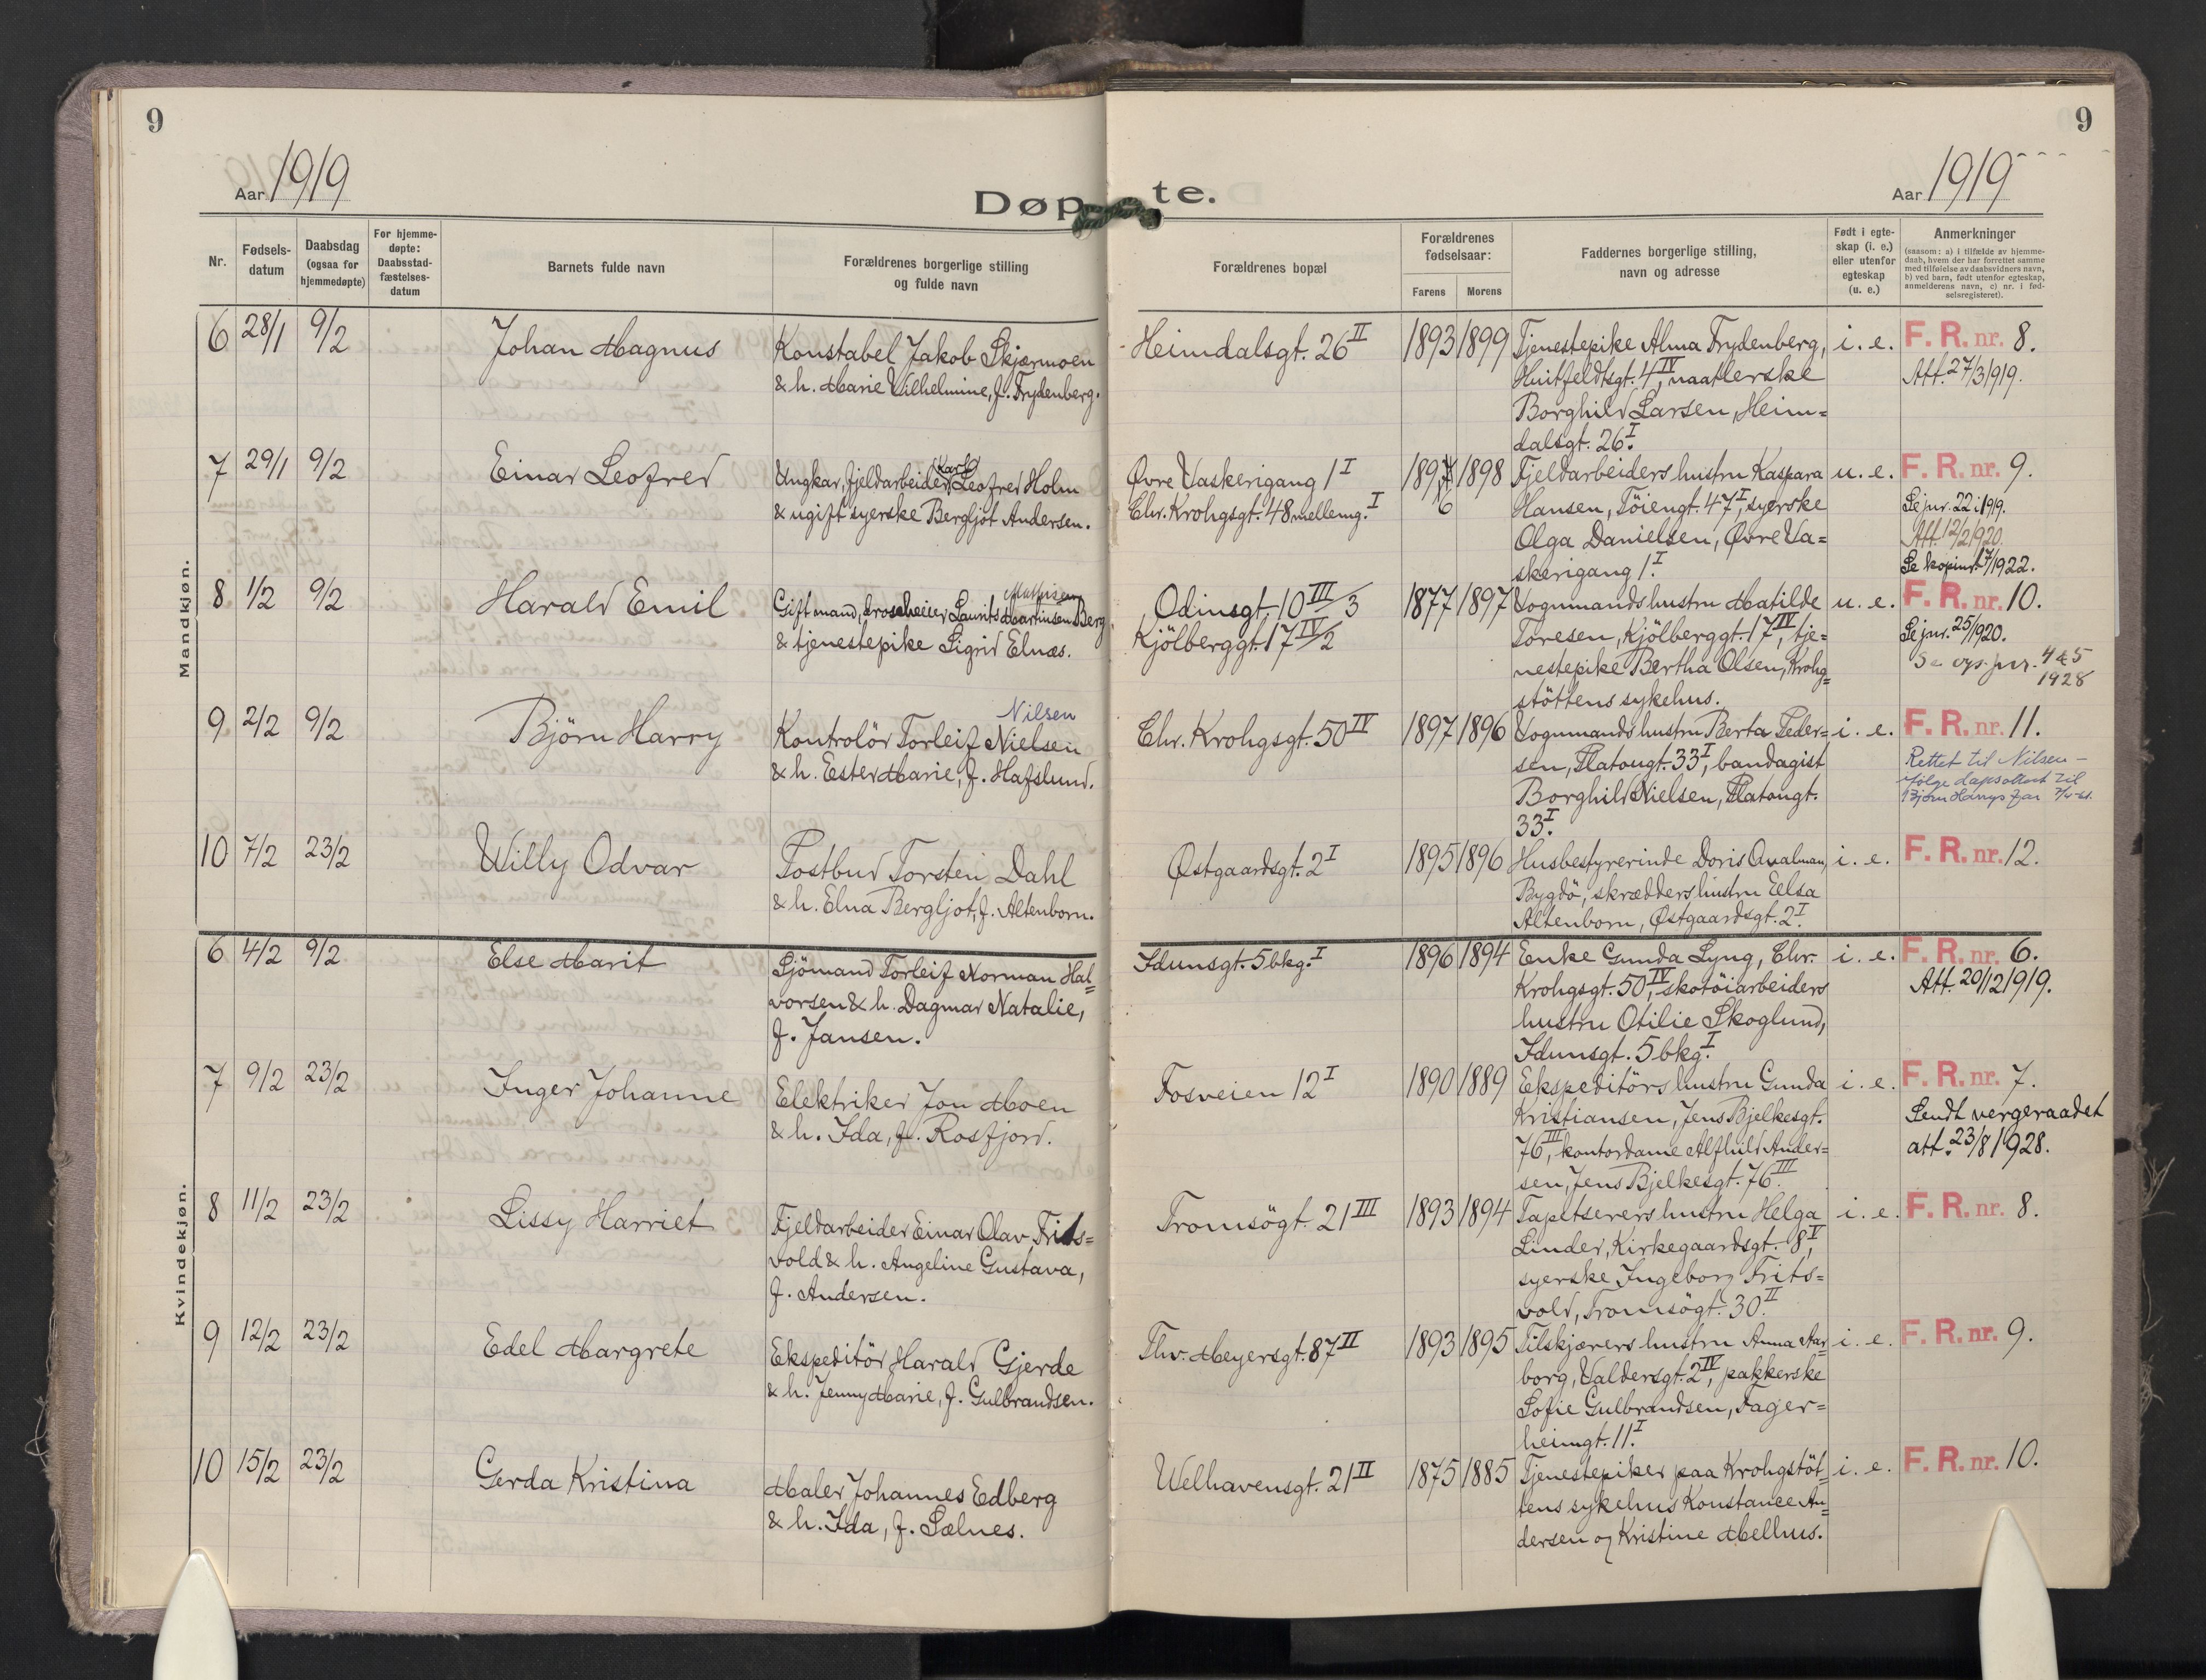 9
9
Aar 1919
Døpte.
Aar 1919
Nr.
Fødselsdatum
Daabsdag (ogsaa for hjemmedøpte)
For hjemmedøpte: Daabsstadfæstelsesdatum
Barnets fulde navn
Forældrenes borgerlige stilling og fulde navn
Forældrenes bopæl
Forældrenes fødselsaar:
Farens
Morens
Faddernes borgerlige stilling, navn og adresse
Født i egteskap (i. e.) eller utenfor egteskap (u. e.)
Anmerkninger
(saasom: a) i tilfælde av hjemmedaab, hvem der har forrettet samme med tilføielse av daabsvidners navn, b) ved barn, født utenfor egteskap, anmelderens navn, c) nr. i fødselsregisteret).
Mandkjøn.
6 28/1 9/2 Johan Magnus
Konstabel Jakob Skjærmoen
& h. Marie Wilhelmine, f. Frydenberg.
Heimdalsgt. 26 II
1893 1899
Tjenestepike Alma Frydenberg,
Huitfeldtsgt. 4 IV, naatlerske
Borghild Larsen, Heim=
dalsgt. 26 I.
i. e.
F. R. nr. 8.
Att. 27/3 1919.
7 29/1 9/2 Einar Leofred
Karl
Ungkar, fjeldarbeider, Leofred Holm
& ugift syerske Bergljot Andersen.
Øvre Vaskerigang 1 I
Chr. Krohgsgt. 48 mellemg. I
1897 1898
6
Fjeldarbeiders hustru Kaspara
Hansen, Töiengt. 47 I, syerske
Olga Danielsen, Øvre Va=
skerigang 1 I.
u. e.
F. R. nr. 9.
Se jnr. 22 i 1919.
Att. 12/2 1920.
Se kopinr. 17/1922.
8 1/2 9/2 Harald Emil
Mathisen
Gift mand, droscheeier Laurits Martinsen Berg
& tjenestepike Sigrid Elnæs.
Odinsgt. 10 III/3
Kjölberggt. 17 IV/2
1877 1897
Vognmands hustru Matilde
Toresen, Kjölberggt. 17 IV, tje=
nestepike Bertha Olsen, Krohg=
stöttens sykehus.
u. e.
F. R. nr. 10.
Se jnr. 25/1920.
Se ogs. jnr. 445
1928
9 2/2 9/2 Björn Harry
Nilsen
Kontrolör Torleif Nielsen
& h. Ester Marie, f. Hafslund.
Chr. Krohgsgt. 50 IV
1897 1896
Vognmands hustru Berta Peder=
sen, Platougt. 33 I, bandagist
Borghild Nielsen, Platougt.
33 I.
i. e.
F. R. nr. 11.
Rettet til Nilsen –
ifølge dapsattest til
Bjørn Harrys far
10 7/2 23/2 Willy Odvar
Postbud Torstein Dahl
& h. Elna Bergljot, f. Altenborn.
Østgaardsgt. 2 I
1895 1896
Husbestyrerinde Doris Qvalman,
Bygdö, skrædders hustru Eelsa
Altenborn, Østgaardsgt. 2 I.
i. e.
F. R. nr. 12.
Kvindekjøn.
6 4/2 9/2 Else Marit
Sjömand Torleif Norman Hal=
vorsen & h. Dagmar Natalie,
f. Jansen.
Idunsgt. 5 bkg. I
1896 1894
Enke Gunda Lyng, Chr.
Krohgsgt. 50 IV, skotöiarbeiders
hustru Otilie Skoglund,
Idunsgt. 5 bkg. I
i. e.
F. R. nr. 6.
Att. 20/12 1919.
7 9/2 23/2 Inger Johanne
Elektriker Jon Moen
& h. Ida, f. Rosfjord.
Fosveien 12 I
1890 1889
Ekspeditörs hustru Gunda
Kristiansen, Jens Bjelkesgt.
76 III, kontordame Alfhild Ander=
sen, Jens Bjelkesgt. 76 III.
i. e.
F. R. nr. 7.
Sendt vergeraadet
att. 23/8 1928.
8 11/2 23/2 Lissy Harriet
Fjeldarbeider Einar Olav Frits=
vold & h. Angeline Gustava,
f. Andersen.
Tromsögt. 21 III
1893 1894
Tapetserers hustru Helga
Linder, Kirkegaardsgt. 8 V,
syerske Ingeborg Frits=
vold, Tromsögt. 30 II.
i. e.
F. R. nr. 8.
9 12/2 23/2 Edel Margrete
Ekspeditör Harald Gjerde
& h. Jenny Marie, f. Gulbrandsen.
Thv. Meyersgt. 87 II
1893 1895
Tilskjærers hustru Anna Aar=
borg, Valdersgt. 2 IV, pakkerske
Sofie Gulbrandsen, Fager=
heimgt. 11 I.
i. e.
F. R. nr. 9.
10 15/2 23/2 Gerda Kristina
Maler Johannes Edberg
& h. Ida, f. Sælnes.
Welhavensgt. 21 II
1875 1885
Tjenestepiker paa Krohgstöt=
tens sykehus Konstance An=
dersen og Kristine Melhus.
i. e.
F. R. nr. 10.